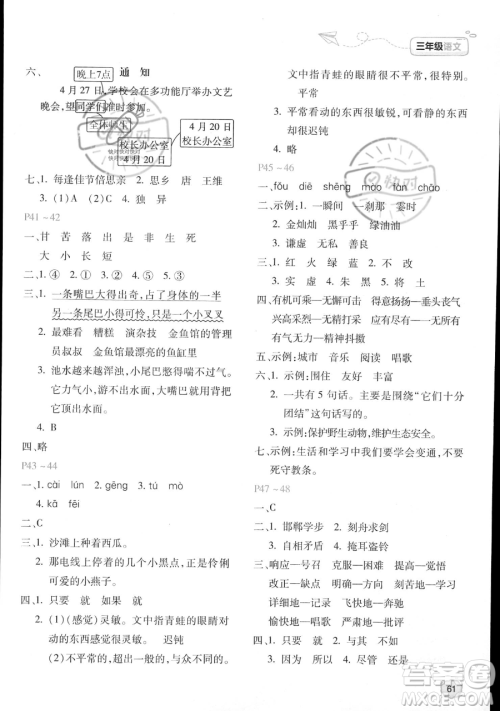 三年级语文
六、 通 知
晚上7点
4 月 27 日,学校会在多功能厅举办文艺
晚会,望同学们准时参加。
全体师生
4 月 20 日
校长办公室
校长办公室
4 月 20 日
七、1. 每逢佳节倍思亲 2. 思乡 唐 王维
3. (1) A (2) C 4. 独 异
P41－42
一、甘 苦 落 出 是 非 生 死
大 小 长 短
二、1. ④ 2. ① 3. ② 4. ③
三、1. 一条嘴巴大得出奇,占身体的一半
另一条尾巴小得可怜,只有一个小叉叉
2. 最难看 糟糕 演杂技 金鱼馆的管理
员叔叔 金鱼馆最漂亮的鱼缸里
3. 池水越来越浑浊,小尾巴感觉很痛苦。
它力气小,游不到水面。大嘴巴可以直
接顶出水面。
4. B
四、略
P43－44
一、1. cài lún 2. gēng 3. dù
4. kǎ fēi
二、C
三、1. 沙滩上种着西瓜。
2. 那电线上停着的小黑点,正是伶俐
可爱的小燕子。
四、1. 只要 就 如果 就
2. (1) (感觉)灵敏。文中指青蛙的眼睛对
动的东西感觉很灵敏。 迟钝
(2) 不平常的,超出一般的,很特殊的。
文中指青蛙的眼睛很不平常,有奇特之处。
平常
3. 平常看动的东西很敏锐,可看静的东西
却很迟钝
4. C
P45－46
一、fǒu diē shéng mào tàn chào
二、示例:1. 一瞬间 一刹那 霎时
2. 金灿灿 黑乎乎 绿油油
3. 谦虚 虚心 善良
三、1. 红 火 绿 蓝 2. 不 改
3. 实 虚 4. 朱 黑 5. 将 士
四、有机可乘—无懈可击—垂头丧气
兴高采烈—无精打采—精神抖擞
五、示例:城市 音乐 阅读 唱歌
六、1. 示例:围住 友好 天敌
2. 一共有 5 句话。主要是围绕“它们十分
团结”这句话写的。
3. 示例:保护野生动物,维护生态安全。
七、示例:生活和学习中我们要灵活变通,不要
死守教条。
P47－48
一、C
二、1. 邯郸学步 2. 刻舟求剑
3. 自相矛盾 4. 掩耳盗铃
三、响应—号召 提高—觉悟
改正—缺点 创造—奇迹
详细地—记录 飞快地—奔驰
愉快地—唱歌 严肃地—批评
四、1. 只有 才 2. 与其 不如
3. 因为 所以 4. 尽管 还是
61